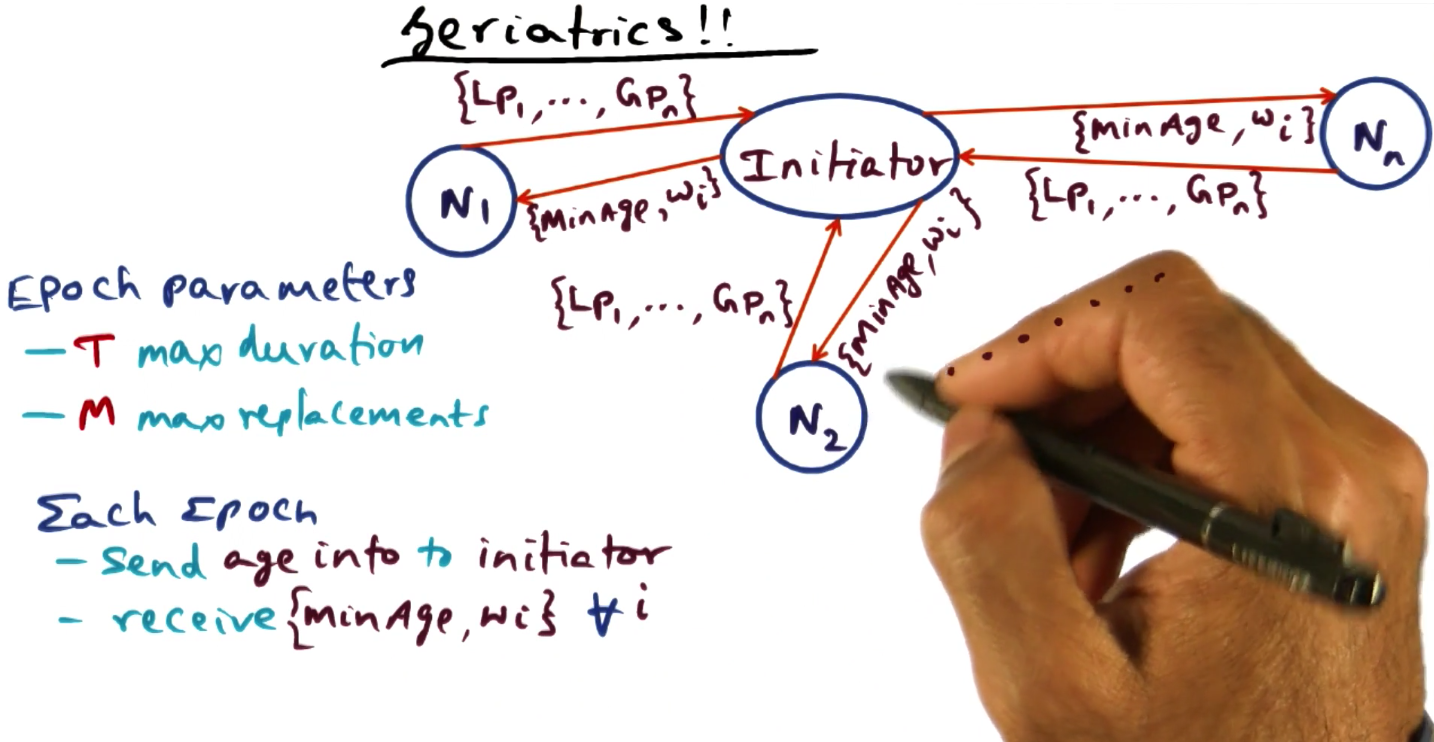 Geriatrics!!
{LP1, ..., GPn}
Initiator
{MinAge, wi}
Nn
N1
{MinAge, wi}
{LP1, ..., GPn}
{LP1, ..., GPn}
{MinAge, wi}
N2
Epoch parameters
— T max duration
— M max replacements
Each Epoch
- Send age info to initiator
- receive {MinAge, wi} ∀ i